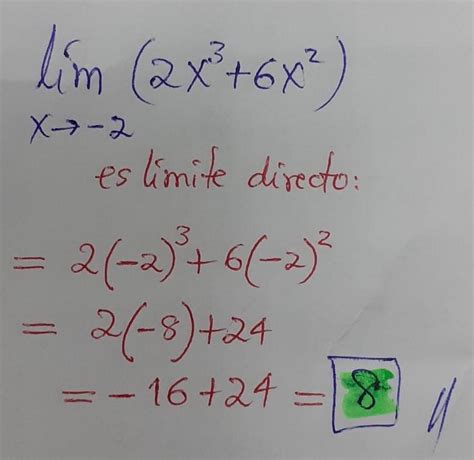 lím (2x³+6x²)
x→-2
es límite directo:
= 2(-2)³+6(-2)²
= 2(-8)+24
= -16+24 = 8